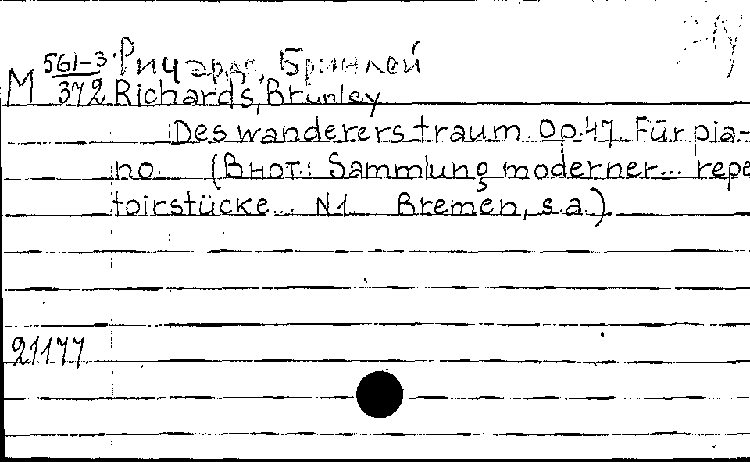 561-3 Ричардс, Бринлей
М 372 Richards, Brunley
Des wanderers traum. Op.47. Für pia-
no. (Внот.: Sammlung moderner... repe
toirstücke... N1. Bremen, s.a.).
21177